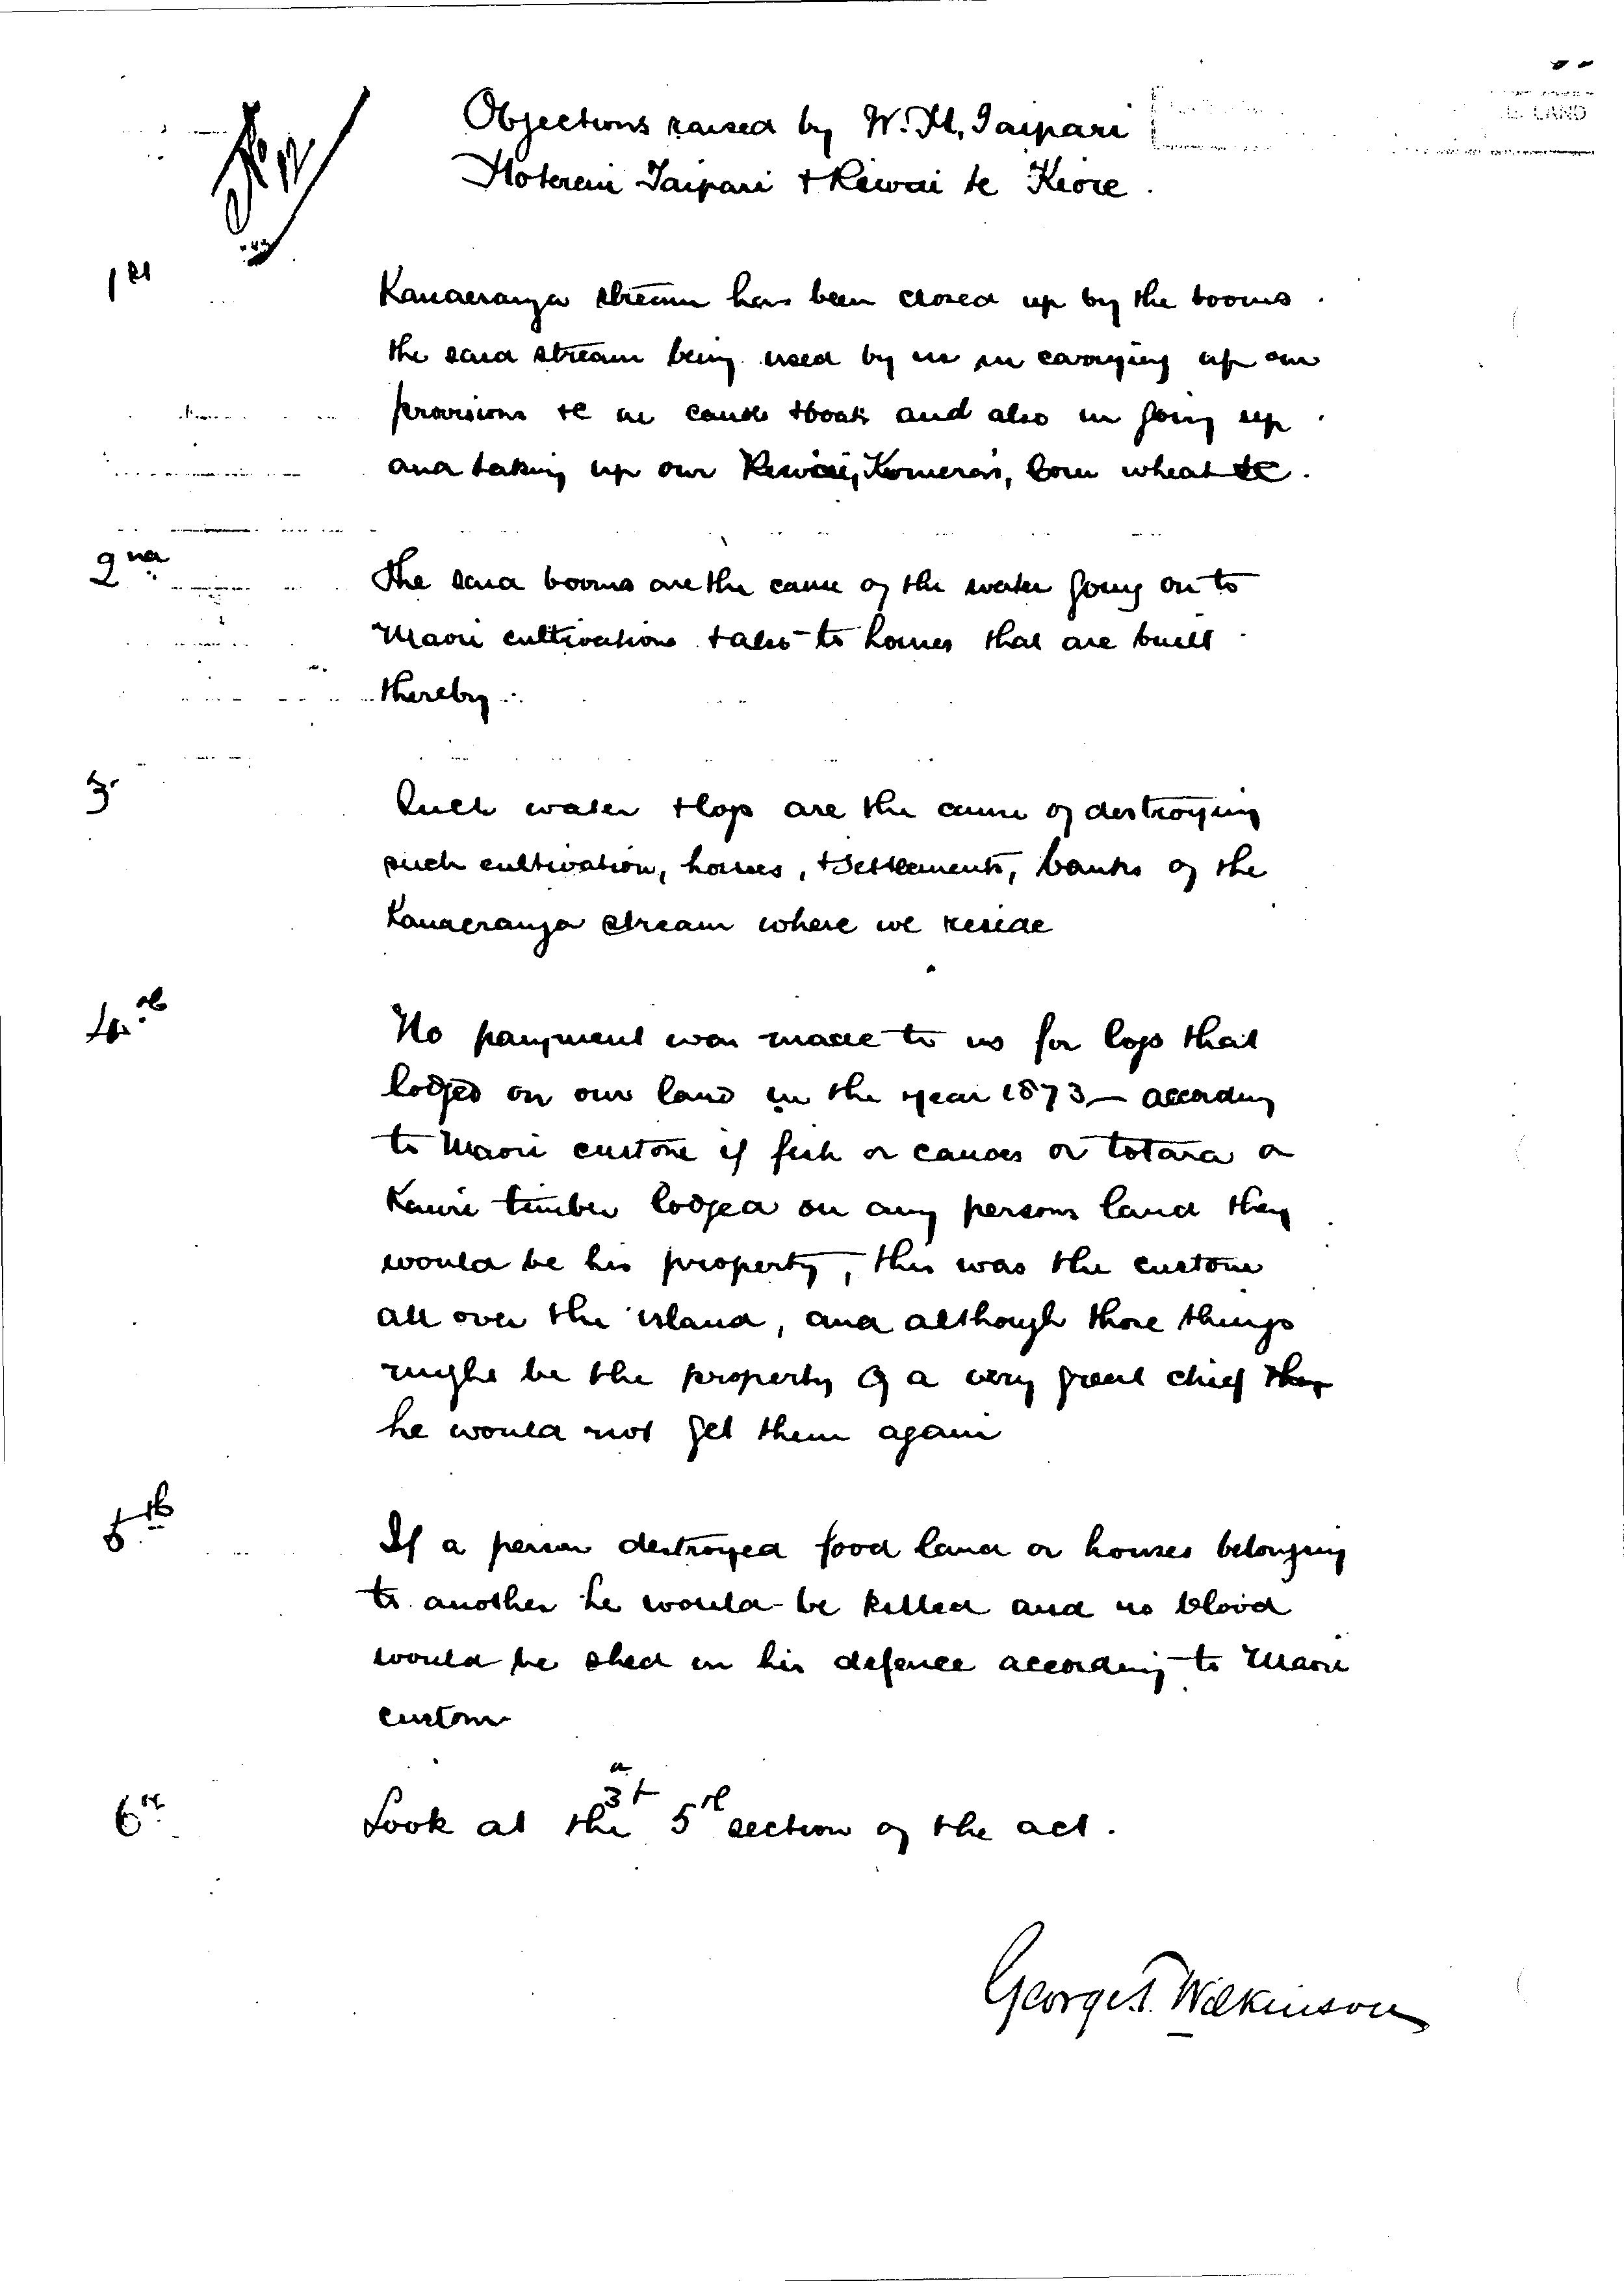 Objections raised by W. H. Taipari
Hoterene Taipari & Rewai te Kiore.
1st
Kauaeranga stream has been closed up by the booms.
the said stream being used by us in carrying up our
provisions &c in canoes & boats and also in going up
and taking up our Kumeras, Corn wheat &c.
2nd
The said booms are the cause of the water going on to
Maori cultivations & also to houses that are built
thereby.
3
Such water & logs are the cause of destroying
such cultivation, houses, & Settlements, banks of the
Kauaeranga stream where we reside
4th
No payment was made to us for logs that
lodged on our land in the year 1873 — according
to Maori custom if fish or canoes or totara or
Kauri timber lodged on any persons land they
would be his property, this was the custom
all over the island, and although those things
might be the property of a very great chief
he would not get them again
5th
If a person destroyed food land or houses belonging
to another he would be killed and no blood
would be shed in his defence according to Maori
custom
6th
Look at the 3d & 5th section of the act.
George T. Wilkinson